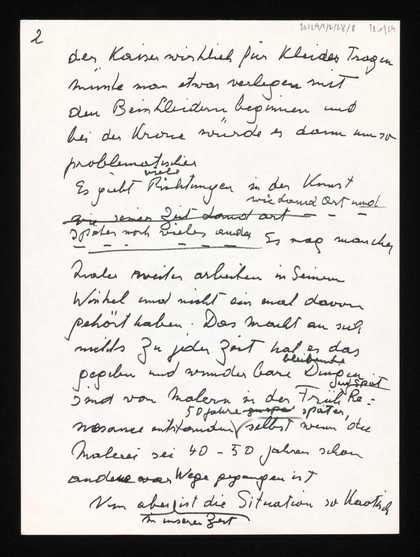 2
der Kaiser wirklich für Kleider Tragen
müsste man etwas verlegen mit
den Beinkleidern beginnen und
bei der Krone würde es dann um so
problematischer
Es giebt viele Richtungen in der Kunst
wie Land Art und
wie seiner Zeit Land art
später noch vieles andere Es mag mancher
Maler weiter arbeiten in seinem
Winkel und nicht ein mal davon
gehört haben. Das macht an sich
nichts Zu jeder Zeit hat es das
gegeben und wunderbare bleibende Dinge
sind von Malern in der Früh Re=
naissance entstanden 50 Jahre zu spät später,
selbst wenn die
Malerei seit 40 - 50 Jahren schon
andere Wege gegangen ist
Nun aber ist die Situation so kaotisch
in unserer Zeit